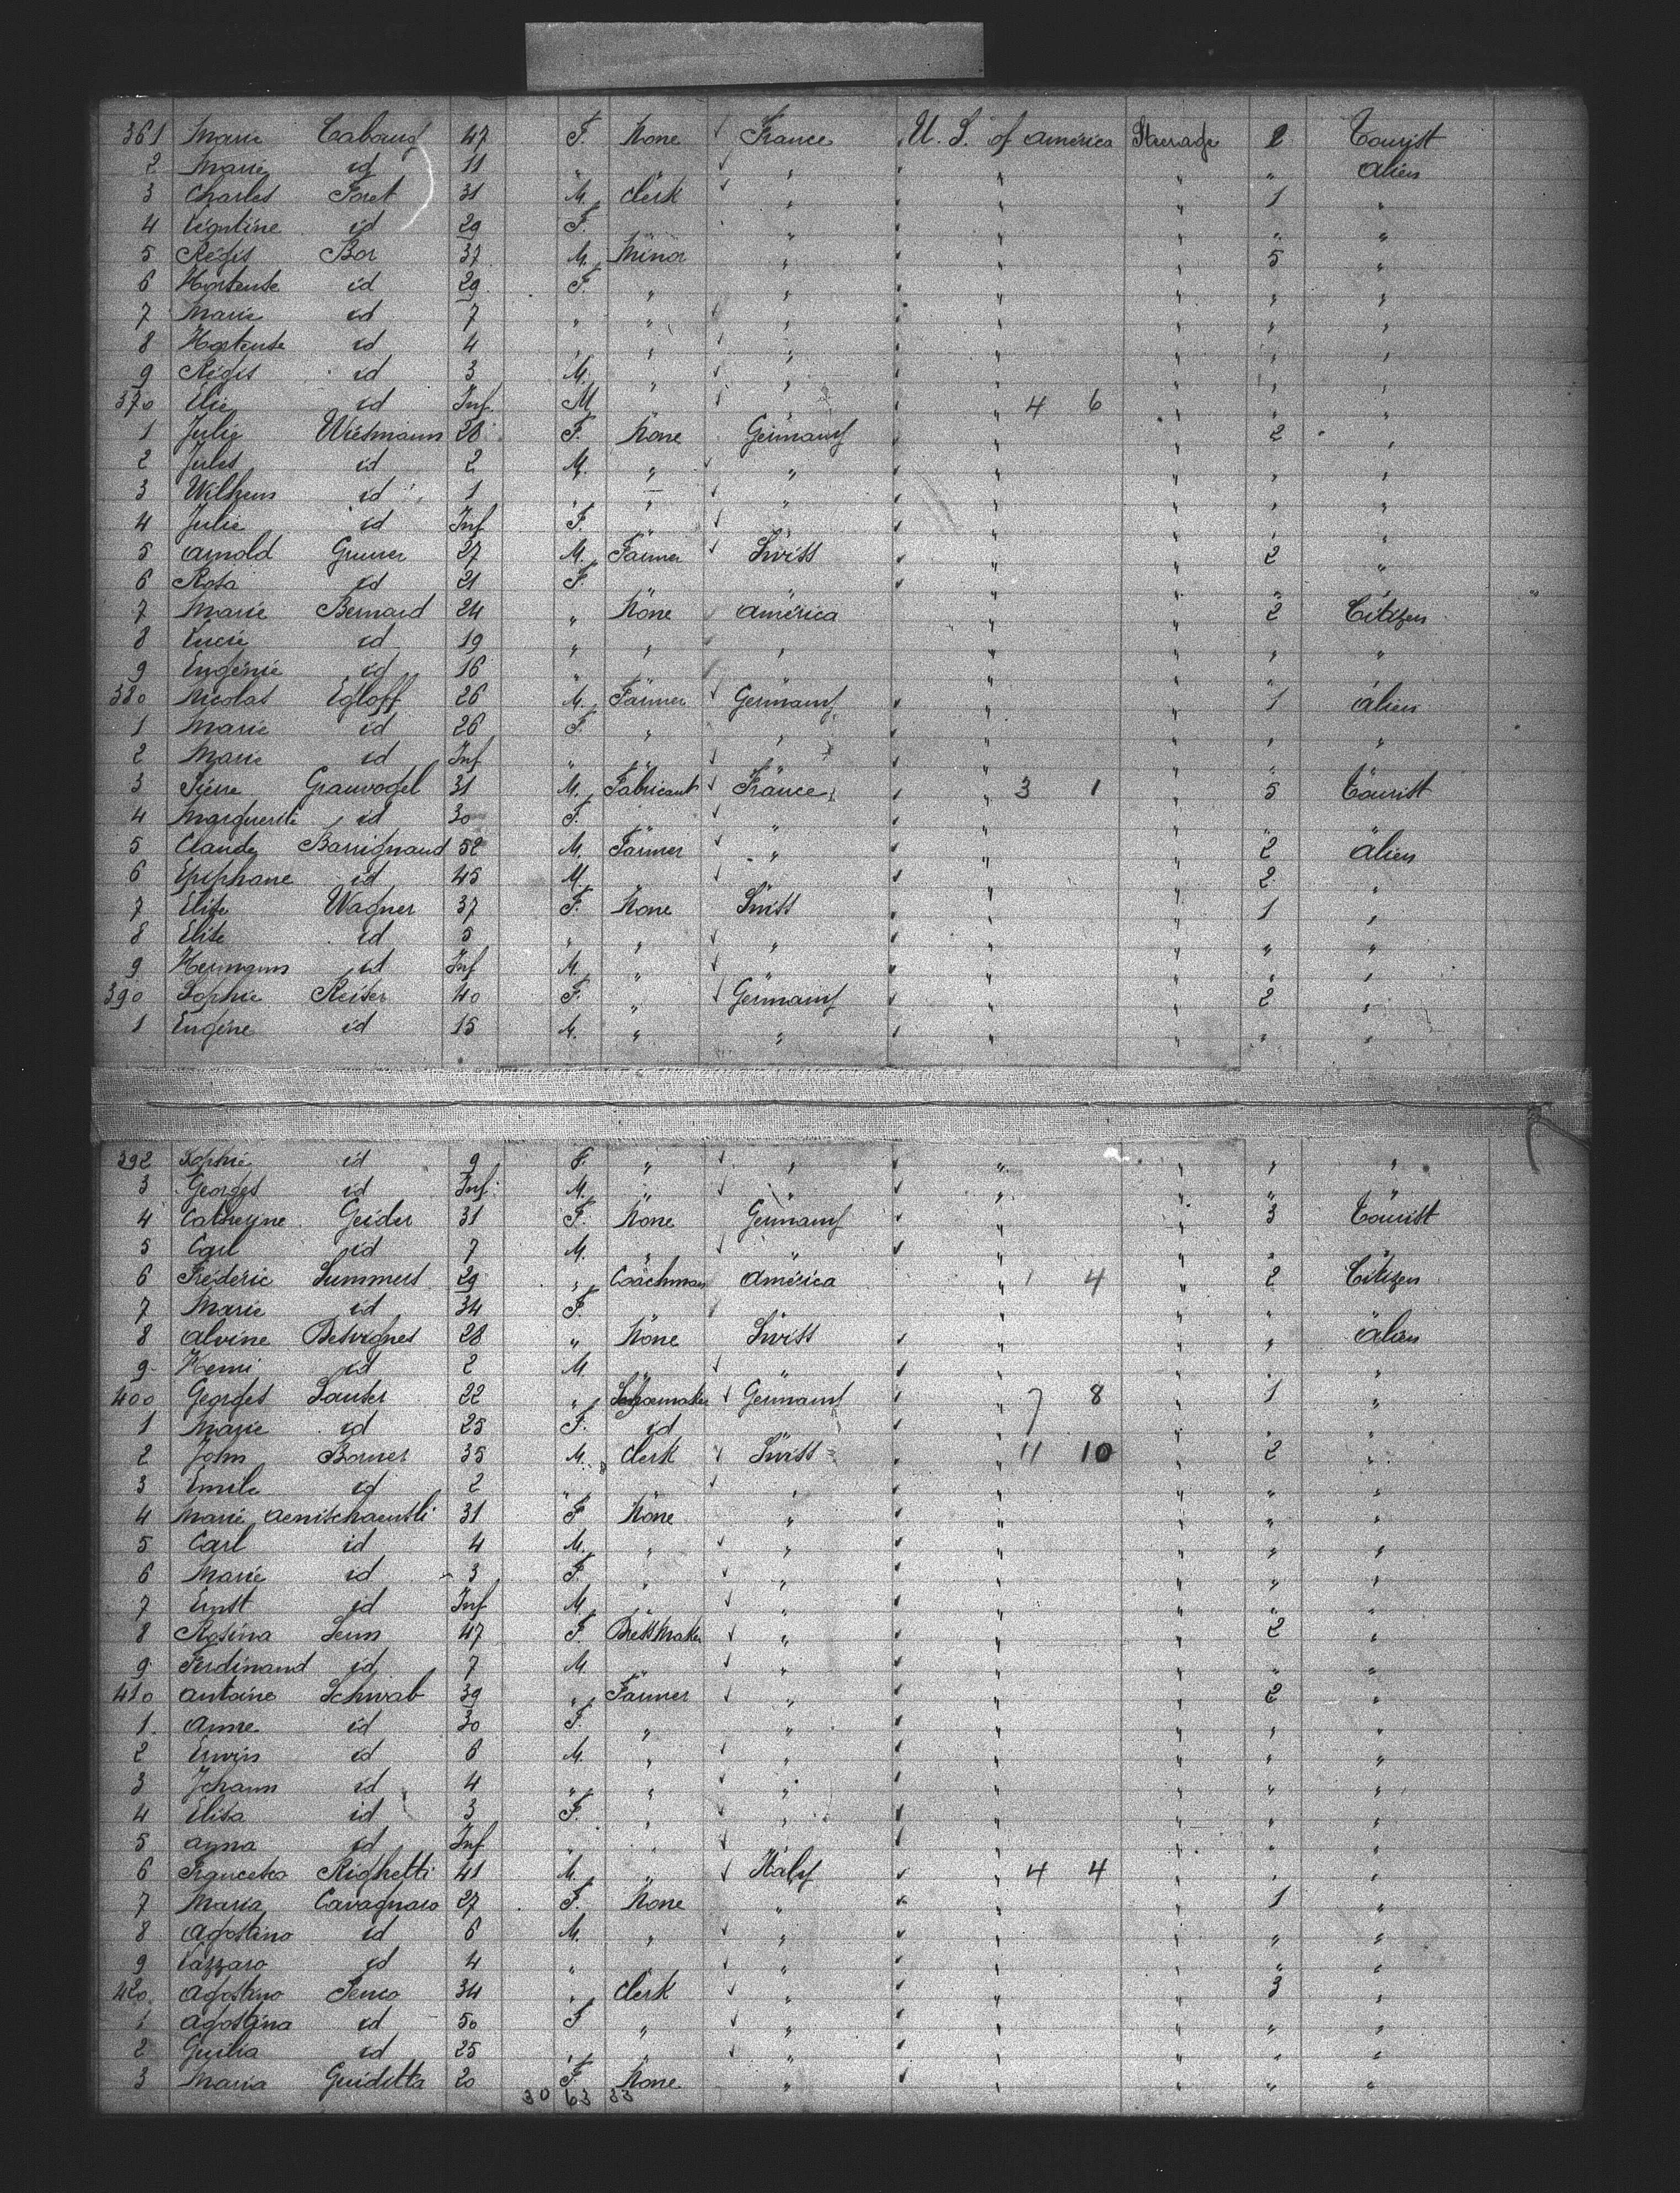 361 Marie Caboud 47 F. None France U. S. of America Steerage 2 Tourist
2 Marie id 11 " " " " " " Alien
3 Charles Foret 31 M. Clerk " " " 1 "
4 Léontine id 29 F. " " " " " "
5 Régis Bor 37 M. Minor " " " 5 "
6 Hortense id 29 F. " " " " " "
7 Marie id 7 " " " " " " "
8 Hortense id 4 " " " " " " "
9 Régis id 3 M. " " " " " "
370 Elie id Inf. M " " " 4 6 " " "
1 Julie Wiesmann 28 F. None Germany " " 2 "
2 Jules id 2 M. " " " " " "
3 Wilhem id 1 " " " " " " "
4 Julie id Inf F. " " " " " "
5 Arnold 27 M. Farmer Swiss " " 2 "
6 Rosa id 21 F. " " " " " "
7 Marie Bernard 24 " None America " " 2 Citizen
8 Lucie id 19 " " " " " " "
9 Eugénie id 16 " " " " " " "
380 Nicolas Egloff 26 M. Farmer Germany " " 1 Alien
1 Marie id 26 F. " " " " " "
2 Marie id Inf " " " " " " "
3 Pierre Grauvogel 31 M. Fabricant France " 3 1 " 5 Tourist
4 Marguerite id 30 F. " " " " " "
5 Claude Barrignaud 52 M. Farmer " " " 2 Alien
6 Epiphane id 45 M. " " " " 2 "
7 Elise Wagner 37 F. None Swiss " " 1 "
8 Elise id 5 " " " " " " "
9 Hermann id Inf M. " " " " " "
390 Sophie Reiser 40 F. " Germany " " 2 "
1 Eugène id 15 M. " " " " " "
392 Sophie id 9 F. " " " " " "
3 Georges id Inf. M. " " " " " "
4 Catherine Geider 31 F. None Germany " " 3 Tourist
5 Carl id 7 M. " " " " " "
6 Frédéric Summers 29 " Coachman America " 1 4 " 2 Citizen
7 Marie id 34 F. " " " " " "
8 Alvine Desvignes 28 " None Swiss " " " Alien
9 Henri id 2 M. " " " " " "
400 Georges Sauter 22 " Schoemaker Germany " 7 8 " 1 "
1 Marie id 25 F. id " " " " "
2 John Borner 35 M. Clerk Swiss " 11 10 " 2 "
3 Emile id 2 " " " " " " "
4 Marie Aenischaensli 31 F None " " " " "
5 Carl id 4 M. " " " " " "
6 Marie id 3 F. " " " " " "
7 Ernst id Inf M. " " " " " "
8 Rosina Senn 47 F. Dressmaker " " " 2 "
9 Ferdinand id 7 M. " " " " " "
410 Antoine Schwab 39 " Farmer " " " 2 "
1 Anne id 30 F. " " " " " "
2 Erwin id 6 M. " " " " " "
3 Johann id 4 " " " " " " "
4 Elisa id 3 F. " " " " " "
5 Anna id Inf " " " " " " "
6 Francesco Righetti 41 M. " Italy " 4 4 " " "
7 Maria Cavagnaro 27 F. None " " " 1 "
8 Agostino id 6 M. " " " " " "
9 Lazzaro id 4 " " " " " " "
420 Agostino 34 " Clerk " " " 3 "
1 Agostina id 50 F " " " " " "
2 Guilia id 25 " " " " " " "
3 Maria Guidetta 20 F. None " " " " "
30 63 33